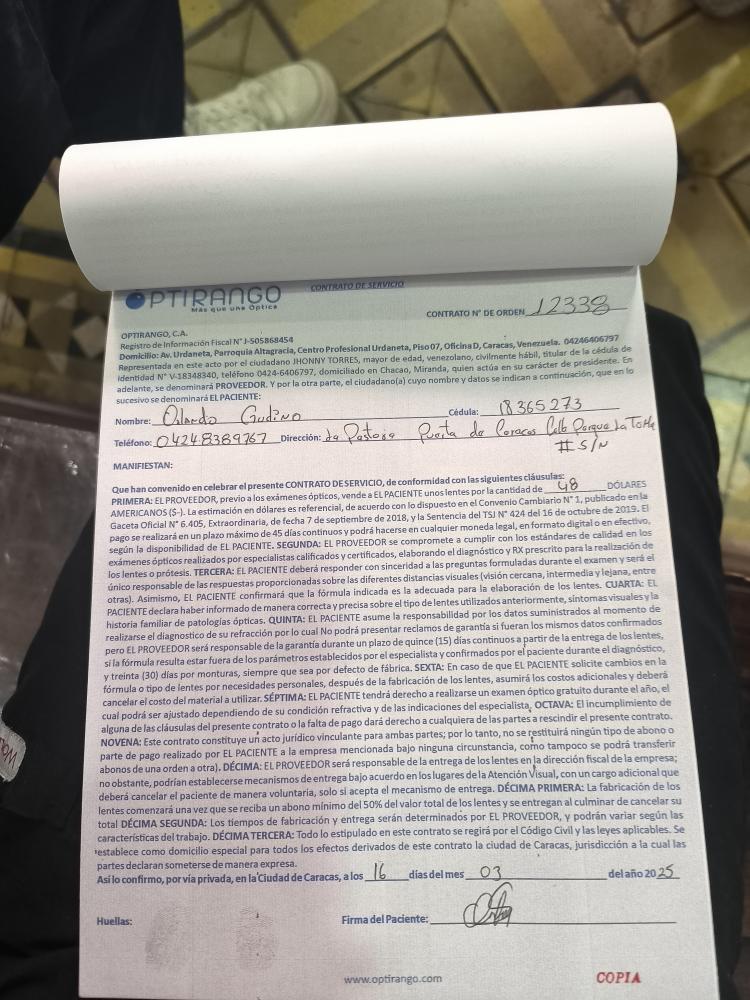 OPTIRANGO
Más que una Óptica
CONTRATO DE SERVICIO
CONTRATO N° DE ORDEN 12338
OPTIRANGO, C.A.
Registro de Información Fiscal N° J-505868454
Domicilio: Av. Urdaneta, Parroquia Altagracia, Centro Profesional Urdaneta, Piso 07, Oficina D, Caracas, Venezuela. 04246406797
Representada en este acto por el ciudadano JHONNY TORRES, mayor de edad, venezolano, civilmente hábil, titular de la cédula de
Identidad N° V-18348340, teléfono 0424-6406797, domiciliado en Chacao, Miranda, quien actúa en su carácter de presidente. En
adelante, se denominará PROVEEDOR. Y por la otra parte, el ciudadano(a) cuyo nombre y datos se indican a continuación, que en lo
sucesivo se denominará EL PACIENTE:
Nombre: Orlando Gudino Cédula: 18365273
Teléfono: 04248389767 Dirección: La Pastora Puerta de Caracas Calle Parque La Torre
# S/N
MANIFIESTAN:
Que han convenido en celebrar el presente CONTRATO DE SERVICIO, de conformidad con las siguientes cláusulas:
PRIMERA: EL PROVEEDOR, previo a los exámenes ópticos, vende a EL PACIENTE unos lentes por la cantidad de 48 DÓLARES
AMERICANOS ($-). La estimación en dólares es referencial, de acuerdo con lo dispuesto en el Convenio Cambiario N° 1, publicado en la
Gaceta Oficial N° 6.405, Extraordinaria, de fecha 7 de septiembre de 2018, y la Sentencia del TSJ N° 424 del 16 de octubre de 2019. El
pago se realizará en un plazo máximo de 45 días continuos y podrá hacerse en cualquier moneda legal, en formato digital o en efectivo,
según la disponibilidad de EL PACIENTE. SEGUNDA: EL PROVEEDOR se compromete a cumplir con los estándares de calidad en los
exámenes ópticos realizados por especialistas calificados y certificados, elaborando el diagnóstico y RX prescrito para la realización de
los lentes o prótesis. TERCERA: EL PACIENTE deberá responder con sinceridad a las preguntas formuladas durante el examen y será el
único responsable de las respuestas proporcionadas sobre las diferentes distancias visuales (visión cercana, intermedia y lejana, entre
otras). Asimismo, EL PACIENTE confirmará que la fórmula indicada es la adecuada para la elaboración de los lentes. CUARTA: EL
PACIENTE declara haber informado de manera correcta y precisa sobre el tipo de lentes utilizados anteriormente, síntomas visuales y la
historia familiar de patologías ópticas. QUINTA: EL PACIENTE asume la responsabilidad por los datos suministrados al momento de
realizarse el diagnostico de su refracción por lo cual No podrá presentar reclamos de garantía si fueran los mismos datos confirmados
pero EL PROVEEDOR será responsable de la garantía durante un plazo de quince (15) días continuos a partir de la entrega de los lentes,
si la fórmula resulta estar fuera de los parámetros establecidos por el especialista y confirmados por el paciente durante el diagnóstico,
y treinta (30) días por monturas, siempre que sea por defecto de fábrica. SEXTA: En caso de que EL PACIENTE solicite cambios en la
fórmula o tipo de lentes por necesidades personales, después de la fabricación de los lentes, asumirá los costos adicionales y deberá
cancelar el costo del material a utilizar. SÉPTIMA: EL PACIENTE tendrá derecho a realizarse un examen óptico gratuito durante el año, el
cual podrá ser ajustado dependiendo de su condición refractiva y de las indicaciones del especialista. OCTAVA: El incumplimiento de
alguna de las cláusulas del presente contrato o la falta de pago dará derecho a cualquiera de las partes a rescindir el presente contrato.
NOVENA: Este contrato constituye un acto jurídico vinculante para ambas partes; por lo tanto, no se restituirá ningún tipo de abono o
parte de pago realizado por EL PACIENTE a la empresa mencionada bajo ninguna circunstancia, como tampoco se podrá transferir
abonos de una orden a otra). DÉCIMA: EL PROVEEDOR será responsable de la entrega de los lentes en la dirección fiscal de la empresa;
no obstante, podrían establecerse mecanismos de entrega bajo acuerdo en los lugares de la Atención Visual, con un cargo adicional que
deberá cancelar el paciente de manera voluntaria, solo si acepta el mecanismo de entrega. DÉCIMA PRIMERA: La fabricación de los
lentes comenzará una vez que se reciba un abono mínimo del 50% del valor total de los lentes y se entregan al culminar de cancelar su
total DÉCIMA SEGUNDA: Los tiempos de fabricación y entrega serán determinados por EL PROVEEDOR, y podrán variar según las
características del trabajo. DÉCIMA TERCERA: Todo lo estipulado en este contrato se regirá por el Código Civil y las leyes aplicables. Se
establece como domicilio especial para todos los efectos derivados de este contrato la ciudad de Caracas, jurisdicción a la cual las
partes declaran someterse de manera expresa.
Así lo confirmo, por vía privada, en la Ciudad de Caracas, a los 16 días del mes 03 del año 2025
Huellas:
Firma del Paciente:
www.optirango.com
COPIA